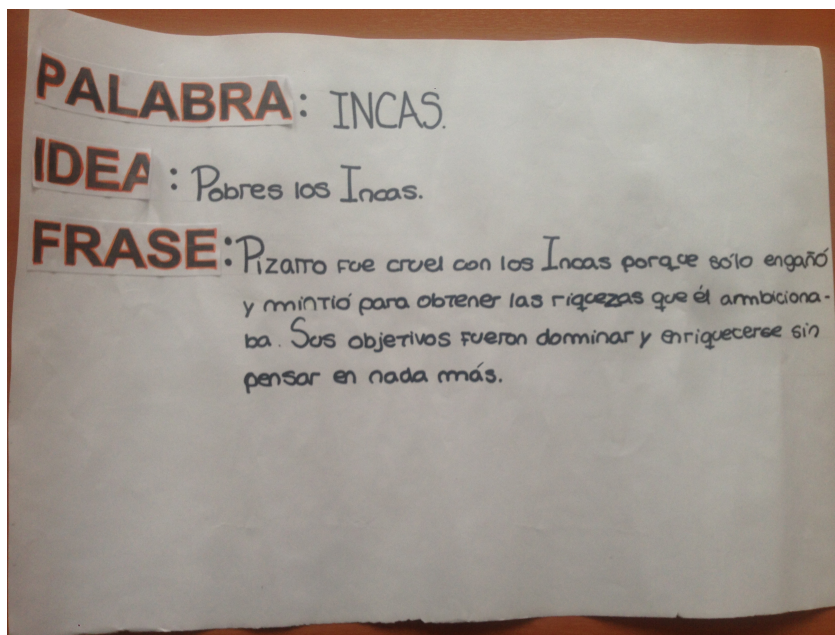 PALABRA: INCAS.
IDEA: Pobres los Incas.
FRASE: Pizarro fue cruel con los Incas porque sólo engañó
y mintió para obtener las riquezas que él ambiciona-
ba. Sus objetivos fueron dominar y enriquecerse sin
pensar en nada más.